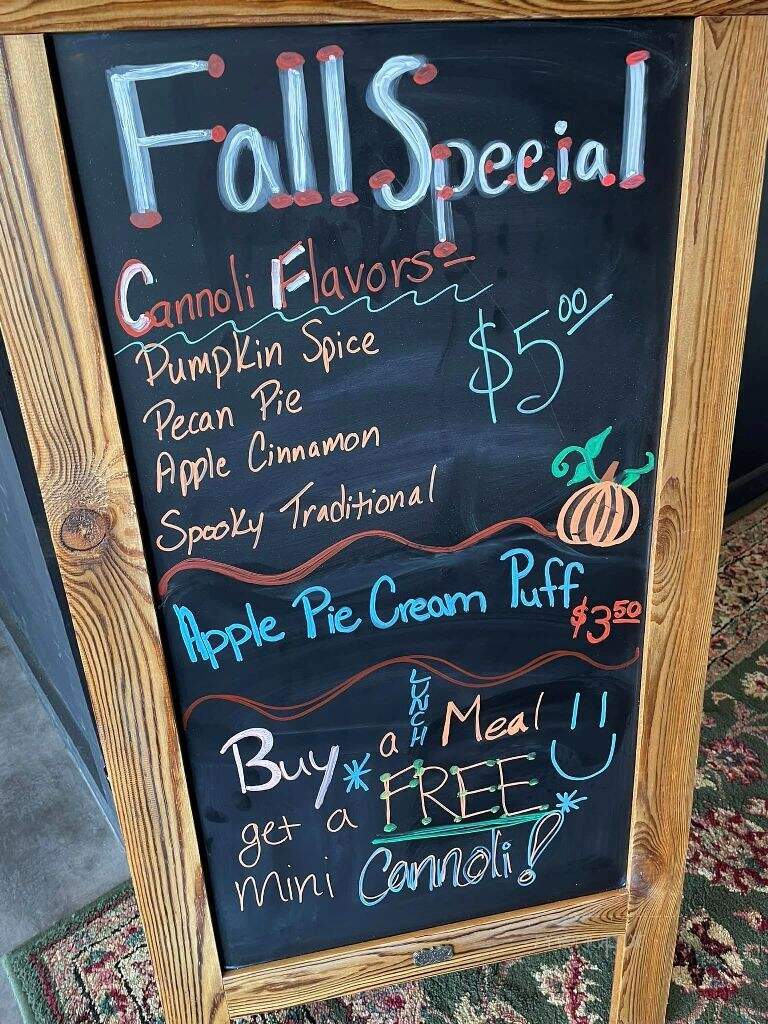 Fall Special
Cannoli Flavors-
Pumpkin Spice
$5.00
Pecan Pie
Apple Cinnamon
Spooky Traditional
Apple Pie Cream Puff
$3.50
Buy a LUNCH Meal
*
get a FREE *
mini Cannoli!